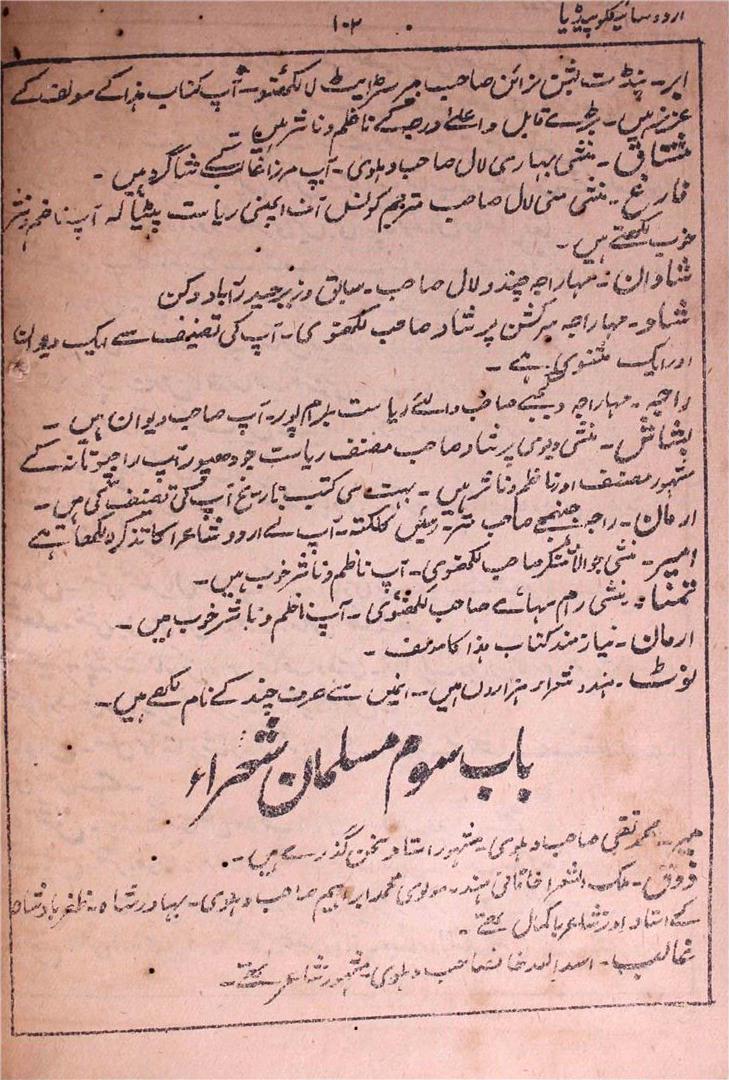 اردو سائیکلوپیڈیا ۱۰۲
ابر۔ پنڈت بشن نرائن صاحب بیرسٹر ایٹ لا لکھنؤ۔ آپ کتاب ہذا کے مولف کے
عزیز ہیں۔ بڑے قابل واعلےٰ درجہ کے ناظم و ناشر ہیں
مشتاق۔ منشی بہاری لال صاحب دہلوی۔ آپ مرزا غالب کے شاگرد ہیں۔
فارغ۔ منشی سنی لال صاحب مترجم کونسل آف ایجنسی ریاست پٹیالہ آپ ناظم و ناشر
خوب لکھتے ہیں۔
شاداں۔ مہاراجہ چندو لال صاحب۔ سابق وزیر حیدرآباد دکن
شاد۔ مہاراجہ سرکشن پرشاد صاحب لکھنوی۔ آپ کی تصنیف سے ایک دیوان
اور ایک مثنوی ہے۔
راجہ۔ مہاراجہ دگبجے صاحب والئے ریاست بلرام پور۔ آپ صاحب دیوان ہیں۔
بشاش۔ منشی دیوی پرشاد صاحب مصنف ریاست جودھپور آپ راجپوتانہ کے
مشہور مصنف اور ناظم و ناثر ہیں۔ بہت سی کتب تاریخ آپ کی تصنیف کی ہیں۔
ارمان۔ راجہ جنمیجے صاحب متر رئیس کلکتہ۔ آپ نے اردو شاعرا کا تذکرہ لکھا ہے
امیر۔ منشی جوالا شنکر صاحب لکھنوی۔ آپ ناظم و ناشر خوب ہیں۔
تمنا۔ منشی رام سہائے صاحب لکھنوی۔ آپ ناظم و ناشر خوب ہیں۔
ارمان۔ نیازمند کتاب ہذا کا مولف۔
نوٹ۔ ہندو شعراء ہزاروں ہیں۔ انمیں سے صرف چند کے نام لکھے ہیں۔
باب سوم مسلمان شعراء
میر۔ محمد تقی صاحب دہلوی۔ مشہور استاد سخن گذرے ہیں۔
ذوق۔ ملک الشعرا خاقانی ہند۔ مولوی محمد ابراہیم صاحب دہلوی۔ بہادر شاہ۔ ظفر بادشاہ
کے استاد اور شاعر باکمال تھے۔
غالب۔ اسد اللہ خانصاحب دہلوی۔ مشہور شاعر تھے۔